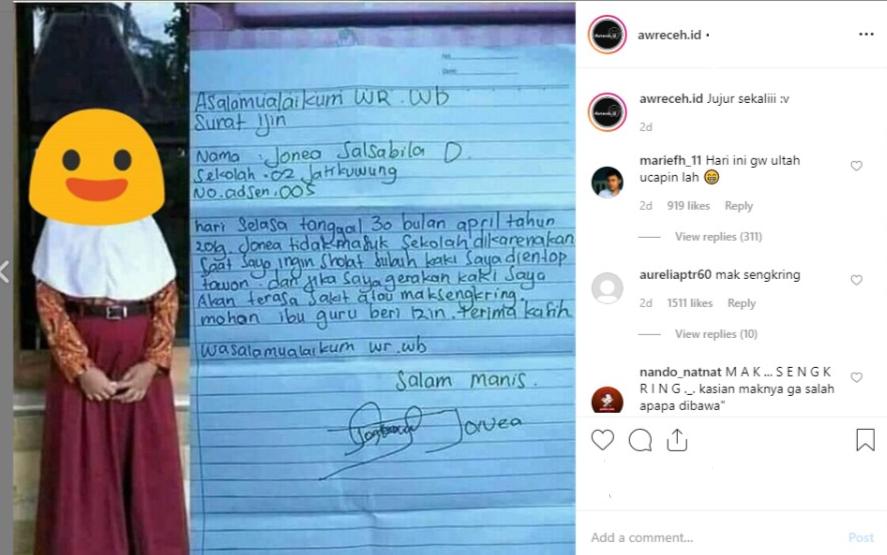 Asalamualaikum WR.Wb
Surat ijin
Nama : Jonea Salsabila D.
Sekolah : 02 Jatikuwung
No.adsen : 005
hari Selasa tanggal 30 bulan april tahun
2019. Jonea tidak masuk sekolah dikarenakan
saat saya ingin sholat subuh kaki saya dientop
tawon. dan jika saya gerakan kaki saya
Akan terasa sakit atau maksengkring.
mohon ibu guru beri izin. Terima kasih
Wasalamualaikum wr.wb
Salam manis.
Jonea
awreceh.id •
awreceh.id Jujur sekaliii :v
2d
mariefh_11 Hari ini gw ultah
ucapin lah 😁
2d 919 likes Reply
View replies (311)
aureliaptr60 mak sengkring
2d 1511 likes Reply
View replies (10)
nando_natnat M A K ... S E N G K
R I N G ._. kasian maknya ga salah
apapa dibawa"
Add a comment...
Post